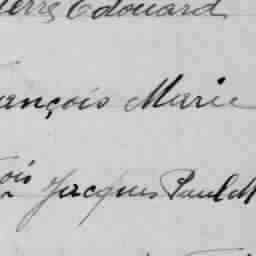 ierre Edouard
ançois Marie
ois Jacques Paul M